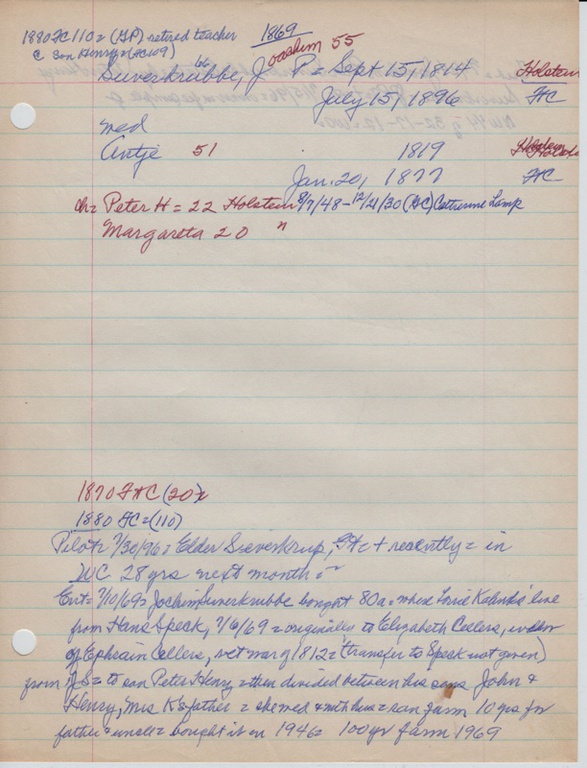 1880 FC 110 = (GP) retired teacher
c son Henry = (FC 109)
1869
Suverkrubbe, Joachim 55 P = Sept 15, 1814 Holstein
July 15, 1896 FC
med
Antje 51 1819 Holstein
Jan. 20, 1877 FC
ch = Peter H = 22 Holstein 9/7/48 - 12/21/30 (GC) Catherine Lamp
Margareta 20 "
1870 FAC (20)
1880 FC = (110)
Pilot = 7/30/96 = Elder Sieverkrup, = + recently = in
WC 28 yrs next month =
Ent = 7/10/69 = Jochim Suverkrubbe bought 80a = where Lorrie Kalinks' live
from Hans Speck, 7/6/69 = originally to Elizabeth Cellers, widow
of Ephraim Cellers, vet war of 1812 = (transfer to Speck not given)
from JS = to son Peter Henry = then divided between his sons John &
Henry, Mrs K's father = she med & with hus = ran farm 10 yrs for
father & uncle = bought it in 1946 = 100 yr farm 1969